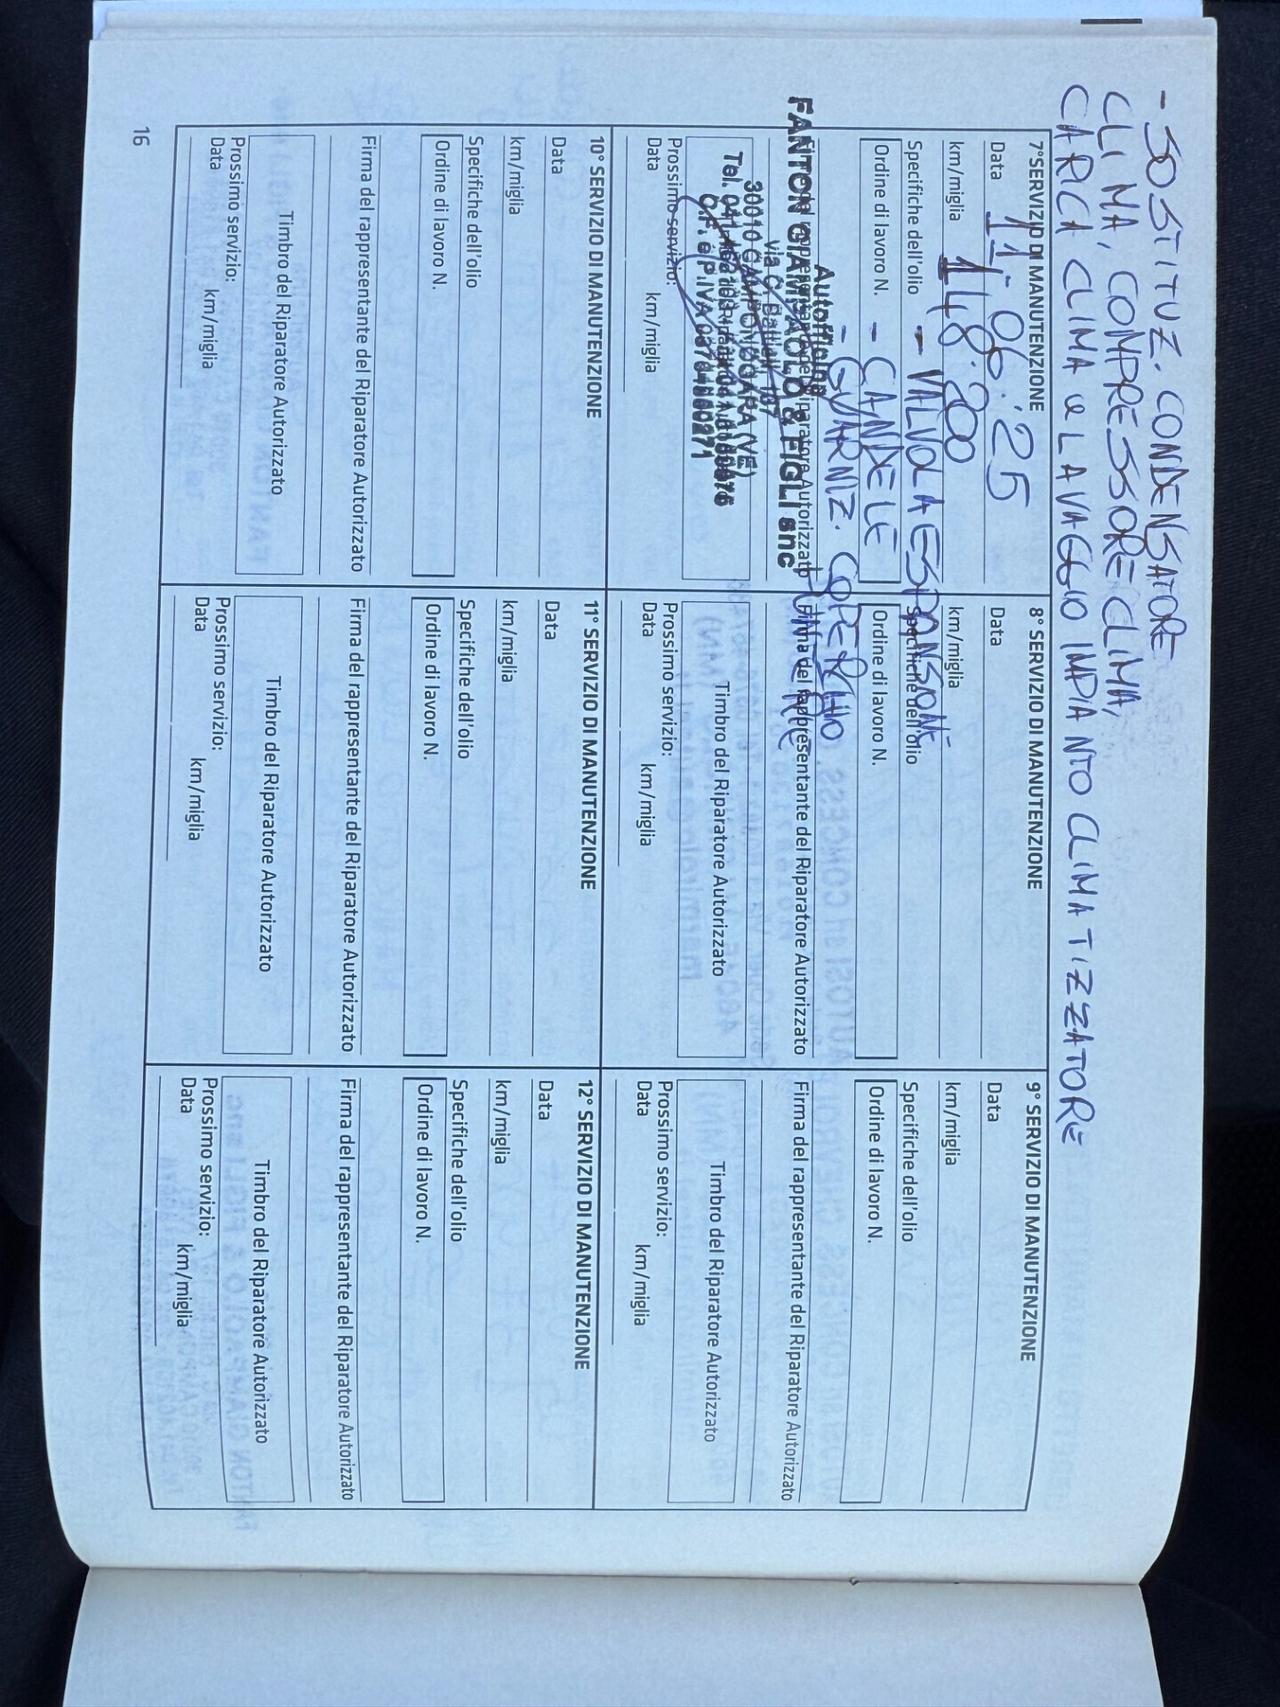 - SOSTITUZ. CONDENSATORE
CLIMA, COMPRESSORE CLIMA,
CARICA CLIMA e LAVAGGIO IMPIANTO CLIMATIZZATORE
7° SERVIZIO DI MANUTENZIONE
Data 11.06.'25
km/miglia 148.800
Specifiche dell'olio - VALVOLA ESPANSIONE
Ordine di lavoro N. - CANDELE
- GUARNIZ. COPERCHIO
PUNTERIE
Autofficina
FANTON GIAMPAOLO & FIGLI snc
30010 CAMPONOGARA (VE)
Tel. 041
Prossimo servizio:
Data km/miglia
8° SERVIZIO DI MANUTENZIONE
Data
km/miglia
Specifiche dell'olio
Ordine di lavoro N.
Firma del rappresentante del Riparatore Autorizzato
Timbro del Riparatore Autorizzato
Prossimo servizio:
Data km/miglia
9° SERVIZIO DI MANUTENZIONE
Data
km/miglia
Specifiche dell'olio
Ordine di lavoro N.
Firma del rappresentante del Riparatore Autorizzato
Timbro del Riparatore Autorizzato
Prossimo servizio:
Data km/miglia
10° SERVIZIO DI MANUTENZIONE
Data
km/miglia
Specifiche dell'olio
Ordine di lavoro N.
Firma del rappresentante del Riparatore Autorizzato
Timbro del Riparatore Autorizzato
Prossimo servizio:
Data km/miglia
11° SERVIZIO DI MANUTENZIONE
Data
km/miglia
Specifiche dell'olio
Ordine di lavoro N.
Firma del rappresentante del Riparatore Autorizzato
Timbro del Riparatore Autorizzato
Prossimo servizio:
Data km/miglia
12° SERVIZIO DI MANUTENZIONE
Data
km/miglia
Specifiche dell'olio
Ordine di lavoro N.
Firma del rappresentante del Riparatore Autorizzato
Timbro del Riparatore Autorizzato
Prossimo servizio:
Data km/miglia
16